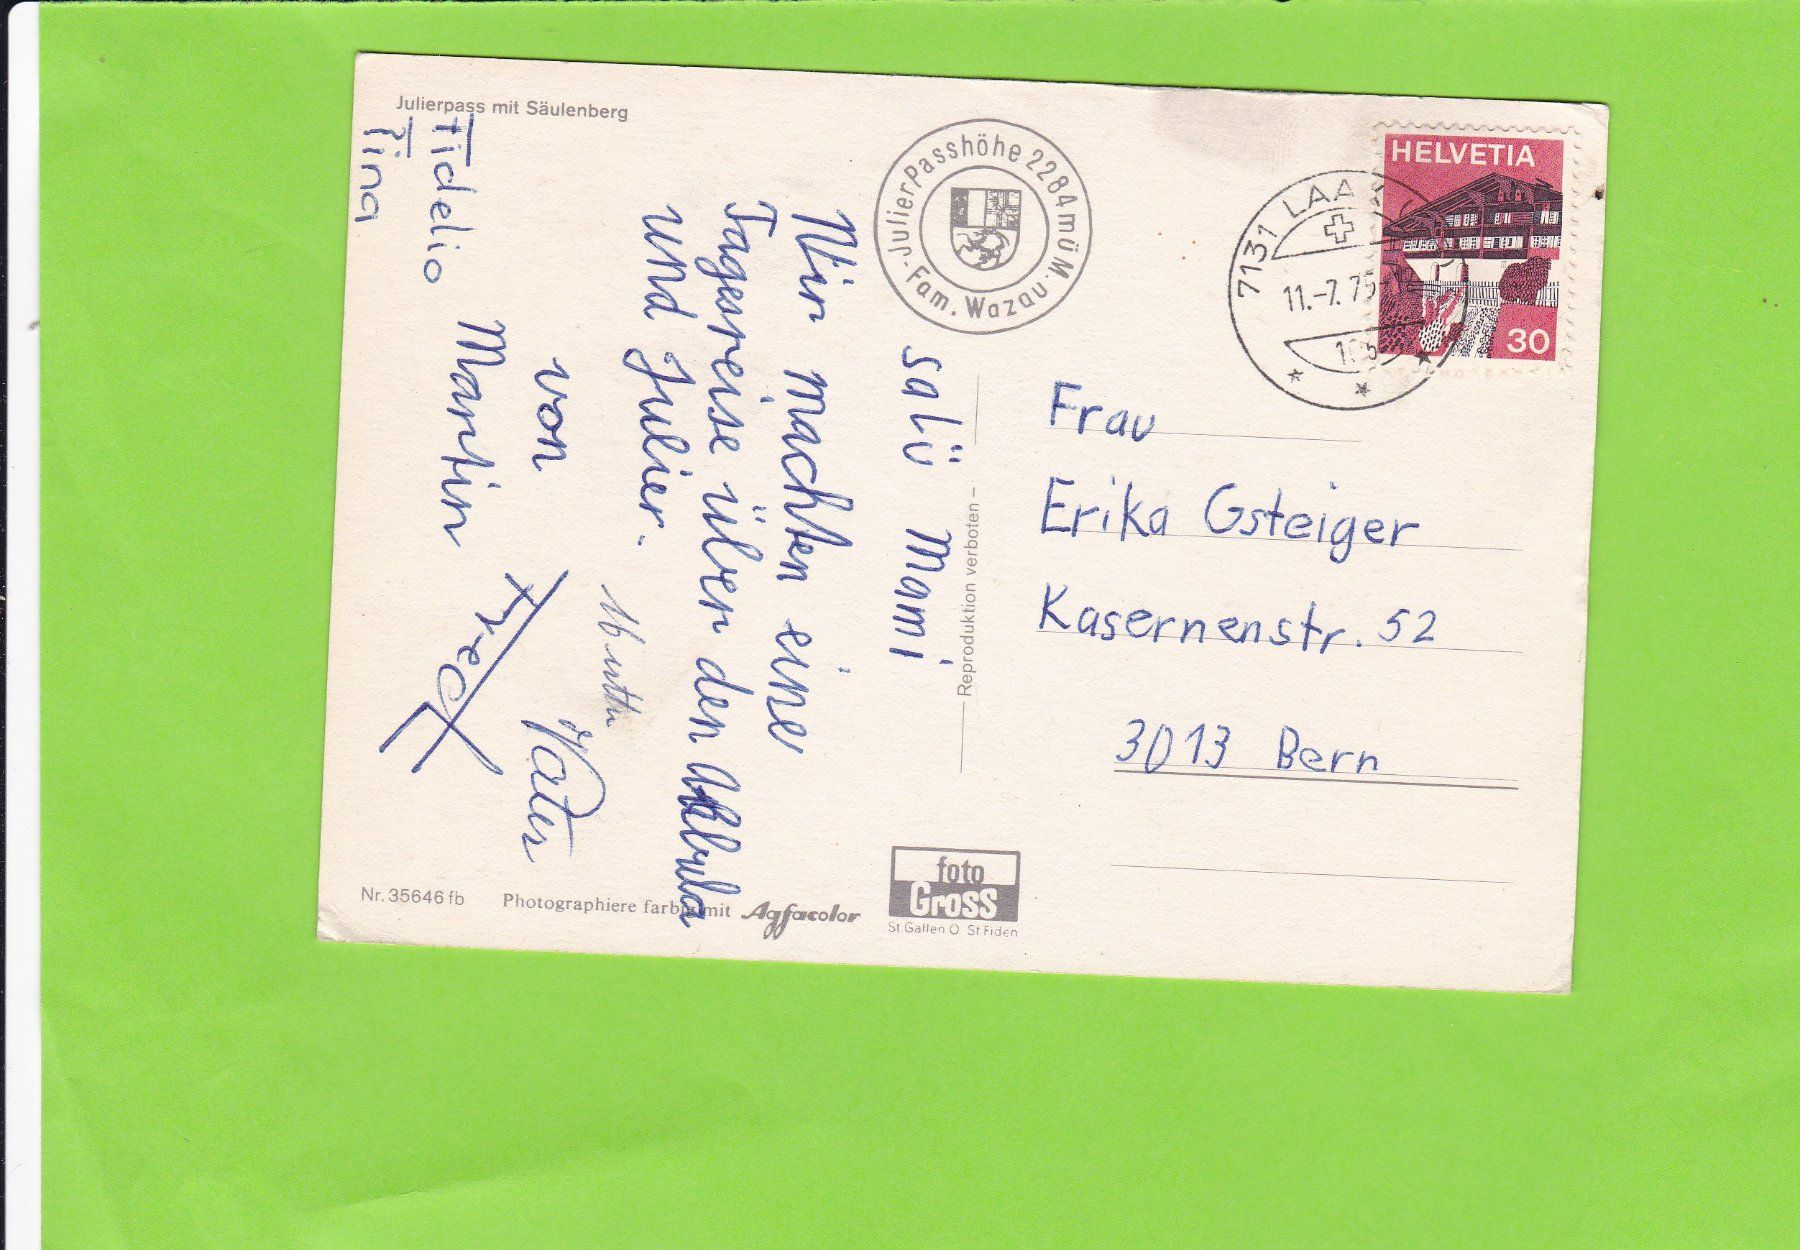 Julierpass mit Säulenberg
JulierPasshöhe 2284müM.
J.-Fam. Wazau.
HELVETIA
30
7131 LAA
11.-7.75
Frau
Erika Gsteiger
Kasernenstr. 52
3013 Bern
salü Mami
Wir machten eine
Tagesreise über den Albula
und Julier.
von
Vater
Martin
Fred
Fidelio
Tina
Reproduktion verboten
Nr. 35646 fb
Photographiere farbig mit Agfacolor
foto
Gross
St Gallen O St Fiden